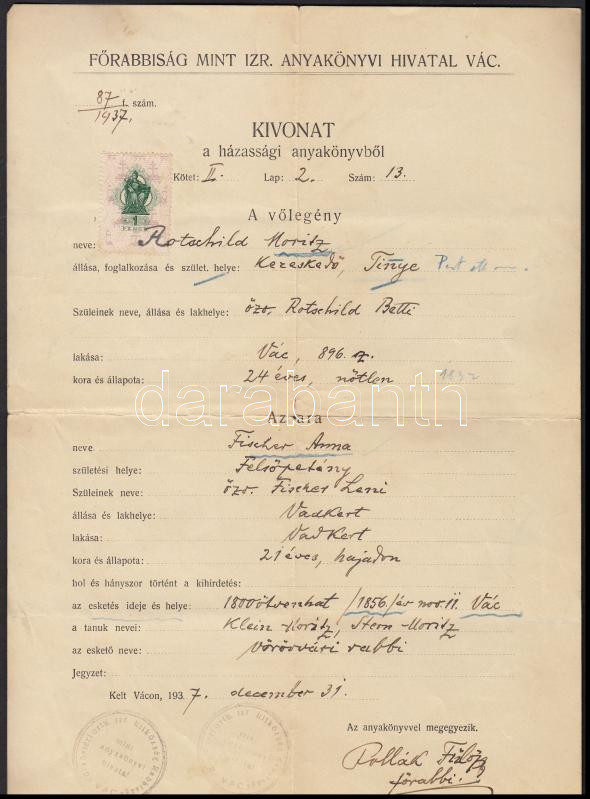 FŐRABBISÁG MINT IZR. ANYAKÖNYVI HIVATAL VÁC.
87 t. szám.
1937.
KIVONAT
a házassági anyakönyvből
Kötet: II. Lap: 2. Szám: 13.
1
A vőlegény
neve: Rotschild Moritz
állása, foglalkozása és szület. helye: Kereskedő, Tinye Pest
Szüleinek neve, állása és lakhelye: özv. Rotschild Betti
lakása: Vác, 896.
kora és állapota: 24 éves, nőtlen 1832
darabanth
Az ara
neve Fischer Anna
születési helye: Felsőpetény
Szüleinek neve: özv. Fischer Leni
állása és lakhelye: Vadkert
lakása: Vadkert
kora és állapota: 21 éves, hajadon
hol és hányszor történt a kihirdetés:
az esketés ideje és helye: 1800ötvenhat /1856./ év nov. 11. Vác
a tanuk nevei: Klein Moritz, Stern Moritz
az eskető neve: Vörösvári rabbi
Jegyzet:
Kelt Vácon, 1937. december 31.
Az anyakönyvvel megegyezik.
Pollák Fülöp
főrabbi.